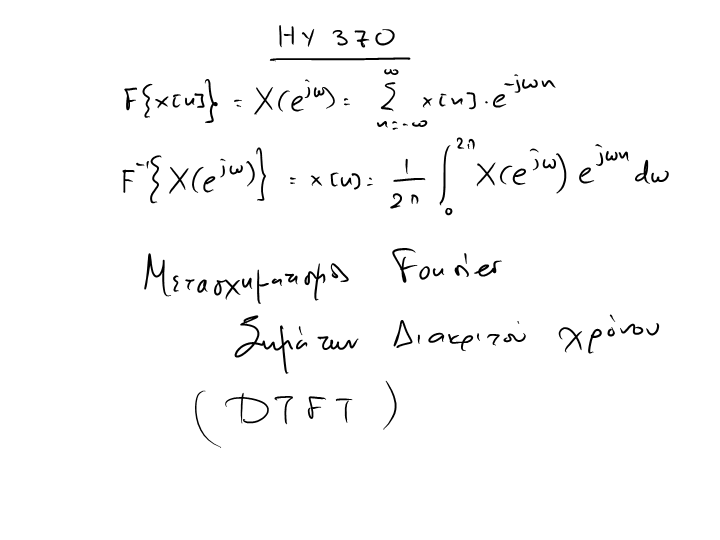 ΗΥ 370
F{x[n]} = X(e^{jω}) = ∑_{n=-∞}^{∞} x[n]·e^{-jωn}
F^{-1}{X(e^{jω})} = x[n] = \frac{1}{2π} ∫_0^{2π} X(e^{jω}) e^{jωn} dω
Μετασχηματισμός Fourier
Σημάτων Διακριτού χρόνου
(DTFT)